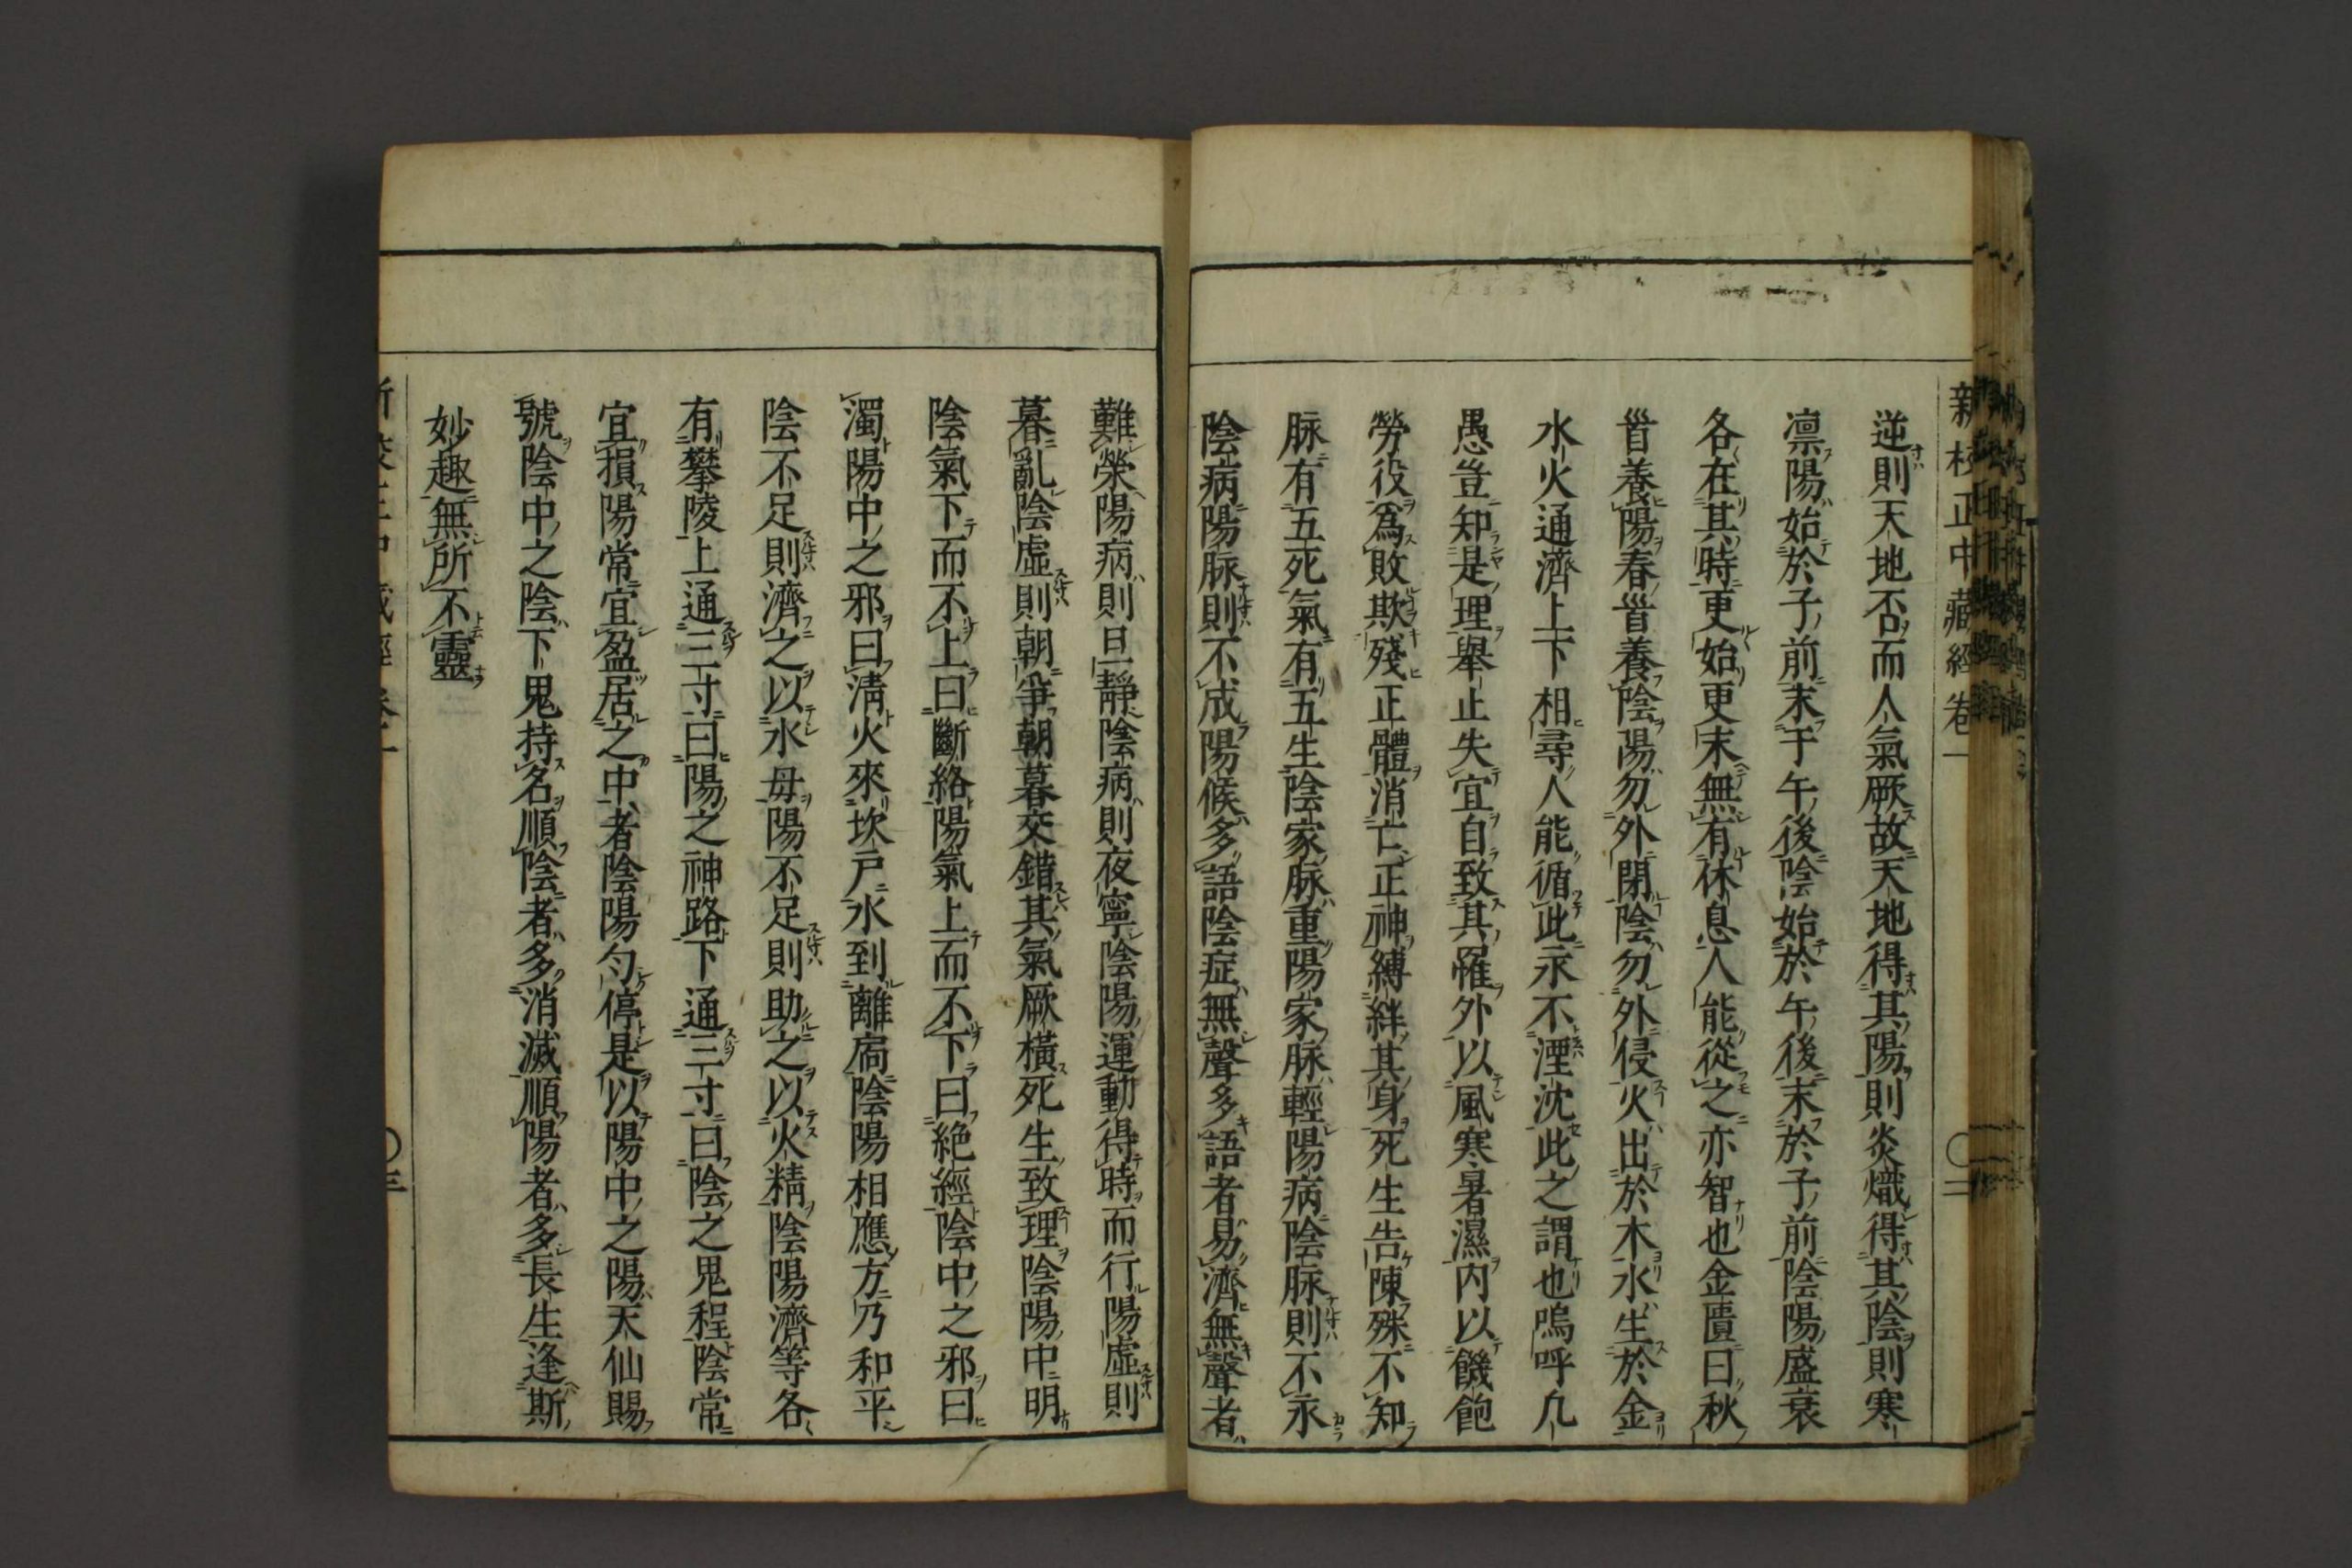 新校正中藏經卷一 〇二
逆則天地否而人氣厥故天地得其陽則炎熾得其陰則寒
凛陽始於子前末于午後陰始於午後末於子前陰陽盛衰
各在其時更始更末無有休息人能從之亦智也金匱曰秋
首養陽春首養陰陽勿外閉陰勿外侵火出於木水生於金
水火通濟上下相尋人能循此永不湮沈此之謂也嗚呼凢
愚豈知是理舉止失宜自致其罹外以風寒暑濕内以饑飽
勞役爲敗欺殘正體消亡正神縛絆其身死生告陳殊不知
脉有五死氣有五生陰家脉重陽家脉輕陽病陰脉則不永
陰病陽脉則不成陽候多語陰症無聲多語者易濟無聲者
難榮陽病則旦靜陰病則夜寧陰陽運動得時而行陽虛則
暮亂陰虛則朝爭朝暮交錯其氣厥橫死生致理陰陽中明
陰氣下而不上曰斷絡陽氣上而不下曰絶經陰中之邪曰
濁陽中之邪曰淸火來坎戸水到離扄陰陽相應方乃和平
陰不足則濟之以水母陽不足則助之以火精陰陽濟等各
有攀陵上通三寸曰陽之神路下通三寸曰陰之鬼程陰常
宜損陽常宜盈居之中者陰陽匀停是以陽中之陽天仙賜
號陰中之陰下鬼持名順陰者多消滅順陽者多長生逢斯
妙趣無所不靈
〇三